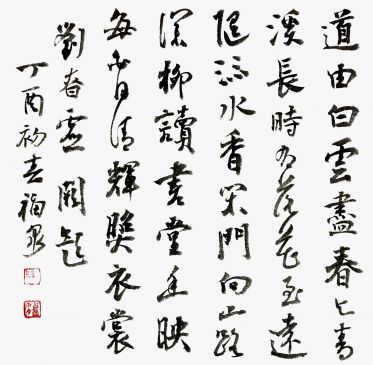 道由白雲盡春与青
溪長時有落花至遠
隨流水香閑門向山路
深柳讀書堂幽映
每白日清輝照衣裳
劉昚虛闕題
丁酉初春福泉